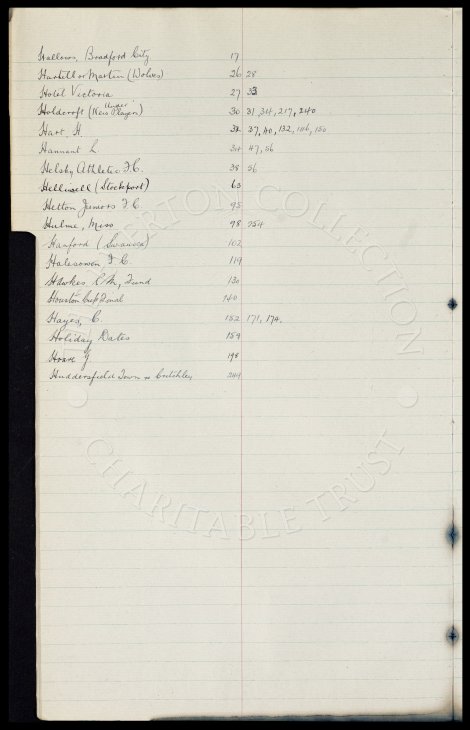 Hallows, Bradford City 17
Hartill or Martin (Wolves) 26 28
Hotel Victoria 27 33
Under
Holdcroft (New Player) 30 31, 34, 217, 240
Hart, H. 32 37, 40, 132, 146, 150
Hannant L. 34 47, 56
Helsby Athletic F.C. 38 56
Helliwell (Stockport) 63
Hetton Juniors F.C. 95
Hulme, Miss 98 754
Hanford (Swansea) 102
Halesowen F.C. 119
Hawkes, R.M., Fund 130
Houston Cup Final 140
Hayes, C. 152 171, 174.
Holiday Dates 159
Hoare J 195
Huddersfield Town v Critchley 244
EVERTON COLLECTION
CHARITABLE TRUST